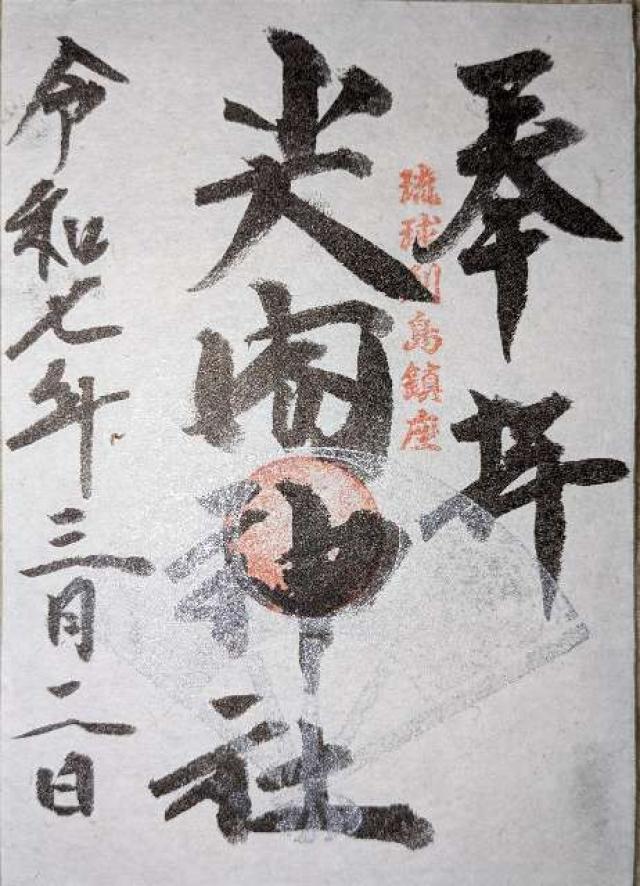 奉拝
琉球列島鎮座
尖閣神社
令和七年三月二日